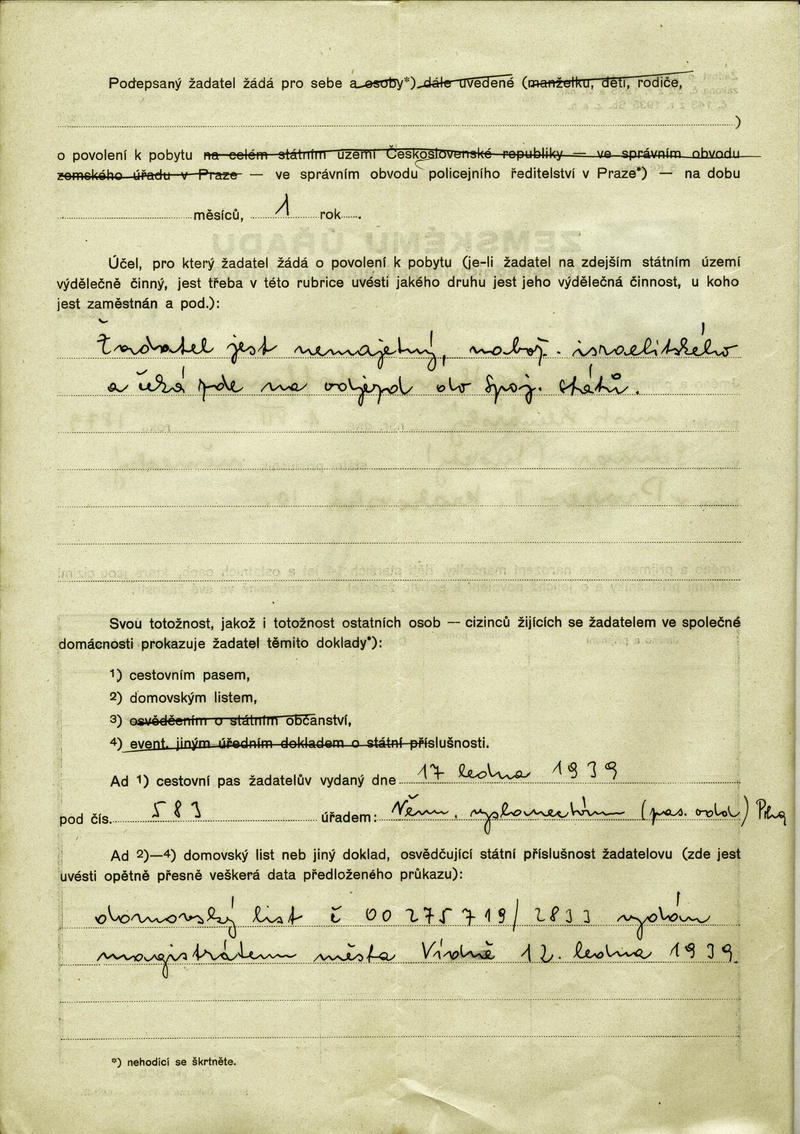 Podepsaný žadatel žádá pro sebe a osoby*) dále uvedené (manželku, děti, rodiče,
)
o povolení k pobytu na celém státním území Československé republiky — ve správním obvodu
zemského úřadu v Praze — ve správním obvodu policejního ředitelství v Praze*) — na dobu
měsíců, 1 rok.
Účel, pro který žadatel žádá o povolení k pobytu (je-li žadatel na zdejším státním území
výdělečně činný, jest třeba v této rubrice uvésti jakého druhu jest jeho výdělečná činnost, u koho
jest zaměstnán a pod.):
jest nemajetný,
a na odjezd do Spoj. států.
Svou totožnost, jakož i totožnost ostatních osob — cizinců žijících se žadatelem ve společné
domácnosti prokazuje žadatel těmito doklady*):
1) cestovním pasem,
2) domovským listem,
3) osvědčením o státním občanství,
4) event. jiným úředním dokladem o státní příslušnosti.
Ad 1) cestovní pas žadatelův vydaný dne 17 ledna 1939
pod čís. 583 úřadem: Něm.
Ad 2)—4) domovský list neb jiný doklad, osvědčující státní příslušnost žadatelovu (zde jest
uvésti opětně přesně veškerá data předloženého průkazu):
domovský list č
magistrátem města Vídně 12. ledna 1939.
*) nehodící se škrtněte.